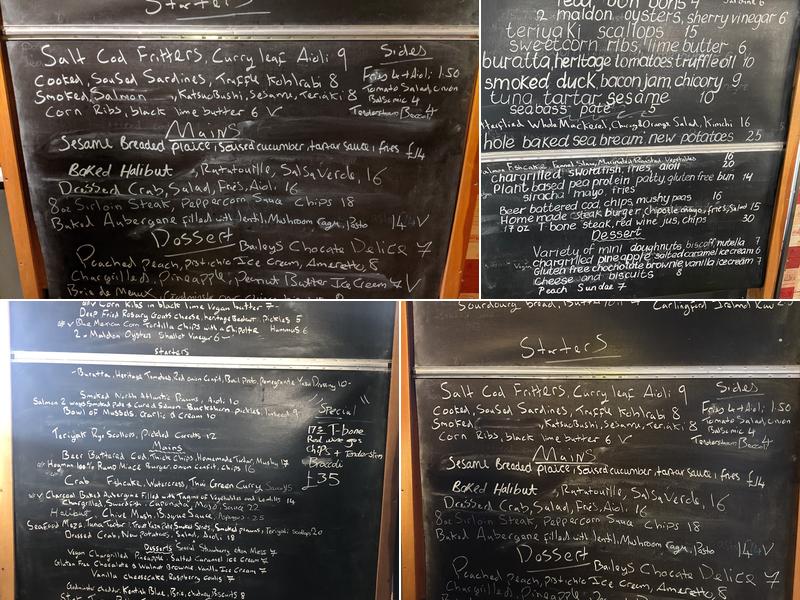 Starters
Salt Cod Fritters, Curry leaf Aioli 9
Cooked, Soused Sardines, Truffle Kohlrabi 8
Smoked, Salmon , KatsuoBushi, Sesame, Teriaki 8
Corn Ribs, black lime butter 6 V
Sides
Fries 4 + Aioli 1.50
Tomato Salad,
Balsamic 4
Tenderstem 4
Mains
Sesame Breaded plaice, soused cucumber, tartar sauce, fries £14
Baked Halibut , Ratatouille, Salsa Verde, 16
Dressed Crab, Salad, Fries, Aioli 16
8oz Sirloin Steak, Peppercorn Sauce Chips 18
Baked Aubergine filled with lentil, Mushroom Pesto 14 V
Dessert
Baileys Chocate Delice 7
Poached Peach, pistichio Ice Cream, Ameretto, 8
Chargrilled, Pineapple, Peanut Butter Ice Cream 7 V
Brie de Meaux
2 maldon oysters, sherry vinegar 6
teriyaki scallops 15
sweetcorn ribs, lime butter 6
buratta, heritage tomatoes truffle oil 10
smoked duck, bacon jam, chicory 9
tuna tartar sesame 10
seabass pate 5
Whole Mackerel, Orange Salad, Kimchi 16
hole baked sea bream, new potatoes 25
Fishcake, Fennel Slaw, Roasted Vegetables 16
chargrilled swordfish, fries aioli 20
Plant based pea protein patty, gluten free bun 14
siracha mayo fries
Beer battered cod, chips, mushy peas 16
Home made steak burger, chipotle mayo, fries, Salad 15
17 oz T bone steak, red wine jus, chips 30
Dessert
Variety of mini doughnuts, biscoff, nutella 7
chargrilled pine apple, salted caramel ice cream 6
Gluten free chocholate brownie, vanilla ice cream 7
cheese and biscuits 8
Peach Sundae 7
Corn Ribs in black lime Vegan butter 7
Deep Fried Rosary Goats cheese, heritage Beetroot, Pickles 5
Blue Mexican Corn Tortilla Chips with a Chipotle Hummus 6
2 Maldon Oysters Shallot Vinegar 6
Starters
Buratta, Heritage Tomatoes Red onion Confit, Basil Pesto, Pomegranate Dressing 10
Smoked North Atlantic Prawns, Aioli 10
Salmon 2 ways Smoked Pate & Cured Salmon Buckthorn pickles, 9
Bowl of Mussels, Garlic & Cream 10
Teriyaki Scallops, Pickled Carrots 12
Special
17oz T-bone
Red wine jus
Chips
+ Tenderstem
Brocoli
£35
Mains
Beer Battered Cod, Thick Chips, Homemade Tartar, Mushy 17
100% Rump Mince Burger, Onion Confit, Chips 16
Crab Fishcake, Watercress, Thai Green Curry
Charcoal Baked Aubergine Filled with Tagine of Vegetables and Lentils 14
Chargrilled, Swordfish, Caponata, 22
Chive Mash, Bisque Sauce, Asparagus 25
Seafood Meze, Tuna Tartar, Smoked prawns, Teriyaki Scallops 20
Dressed Crab, New Potatoes, Salad, Aioli 18
Desserts Special Strawberry eton Mess 7
Vegan Chargrilled Pineapple, Salted Caramel ice Cream 7
Gluten Free Chocolate & Walnut Brownie Vanilla Ice Cream 7
Vanilla Cheesecake Raspberry coulis 7
Cheddar, Kentish Blue, Brie, chutney, Biscuits 8
Sourdough bread,
Carlingford Ireland
Starters
Salt Cod Fritters, Curry leaf Aioli 9
Cooked, Soused Sardines, Truffle Kohlrabi 8
Smoked , KatsuoBushi, Sesame, Teriaki 8
Corn Ribs, black lime butter 6 V
Sides
Fries 4 + Aioli 1.50
Tomato Salad,
Balsamic 4
Tenderstem 4
Mains
Sesame Breaded plaice, soused cucumber, tartar sauce, fries £14
Baked Halibut , Ratatouille, Salsa Verde, 16
Dressed Crab, Salad, Fries, Aioli 16
8oz Sirloin Steak, Peppercorn Sauce Chips 18
Baked Aubergine filled with lentil, Mushroom Pesto 14 V
Dossert
Baileys Chocate Delice 7
Poached Peach, pistichio Ice Cream, Ameretto, 8
Chargrilled, Pineapple, Peanut Butter Ice Cream